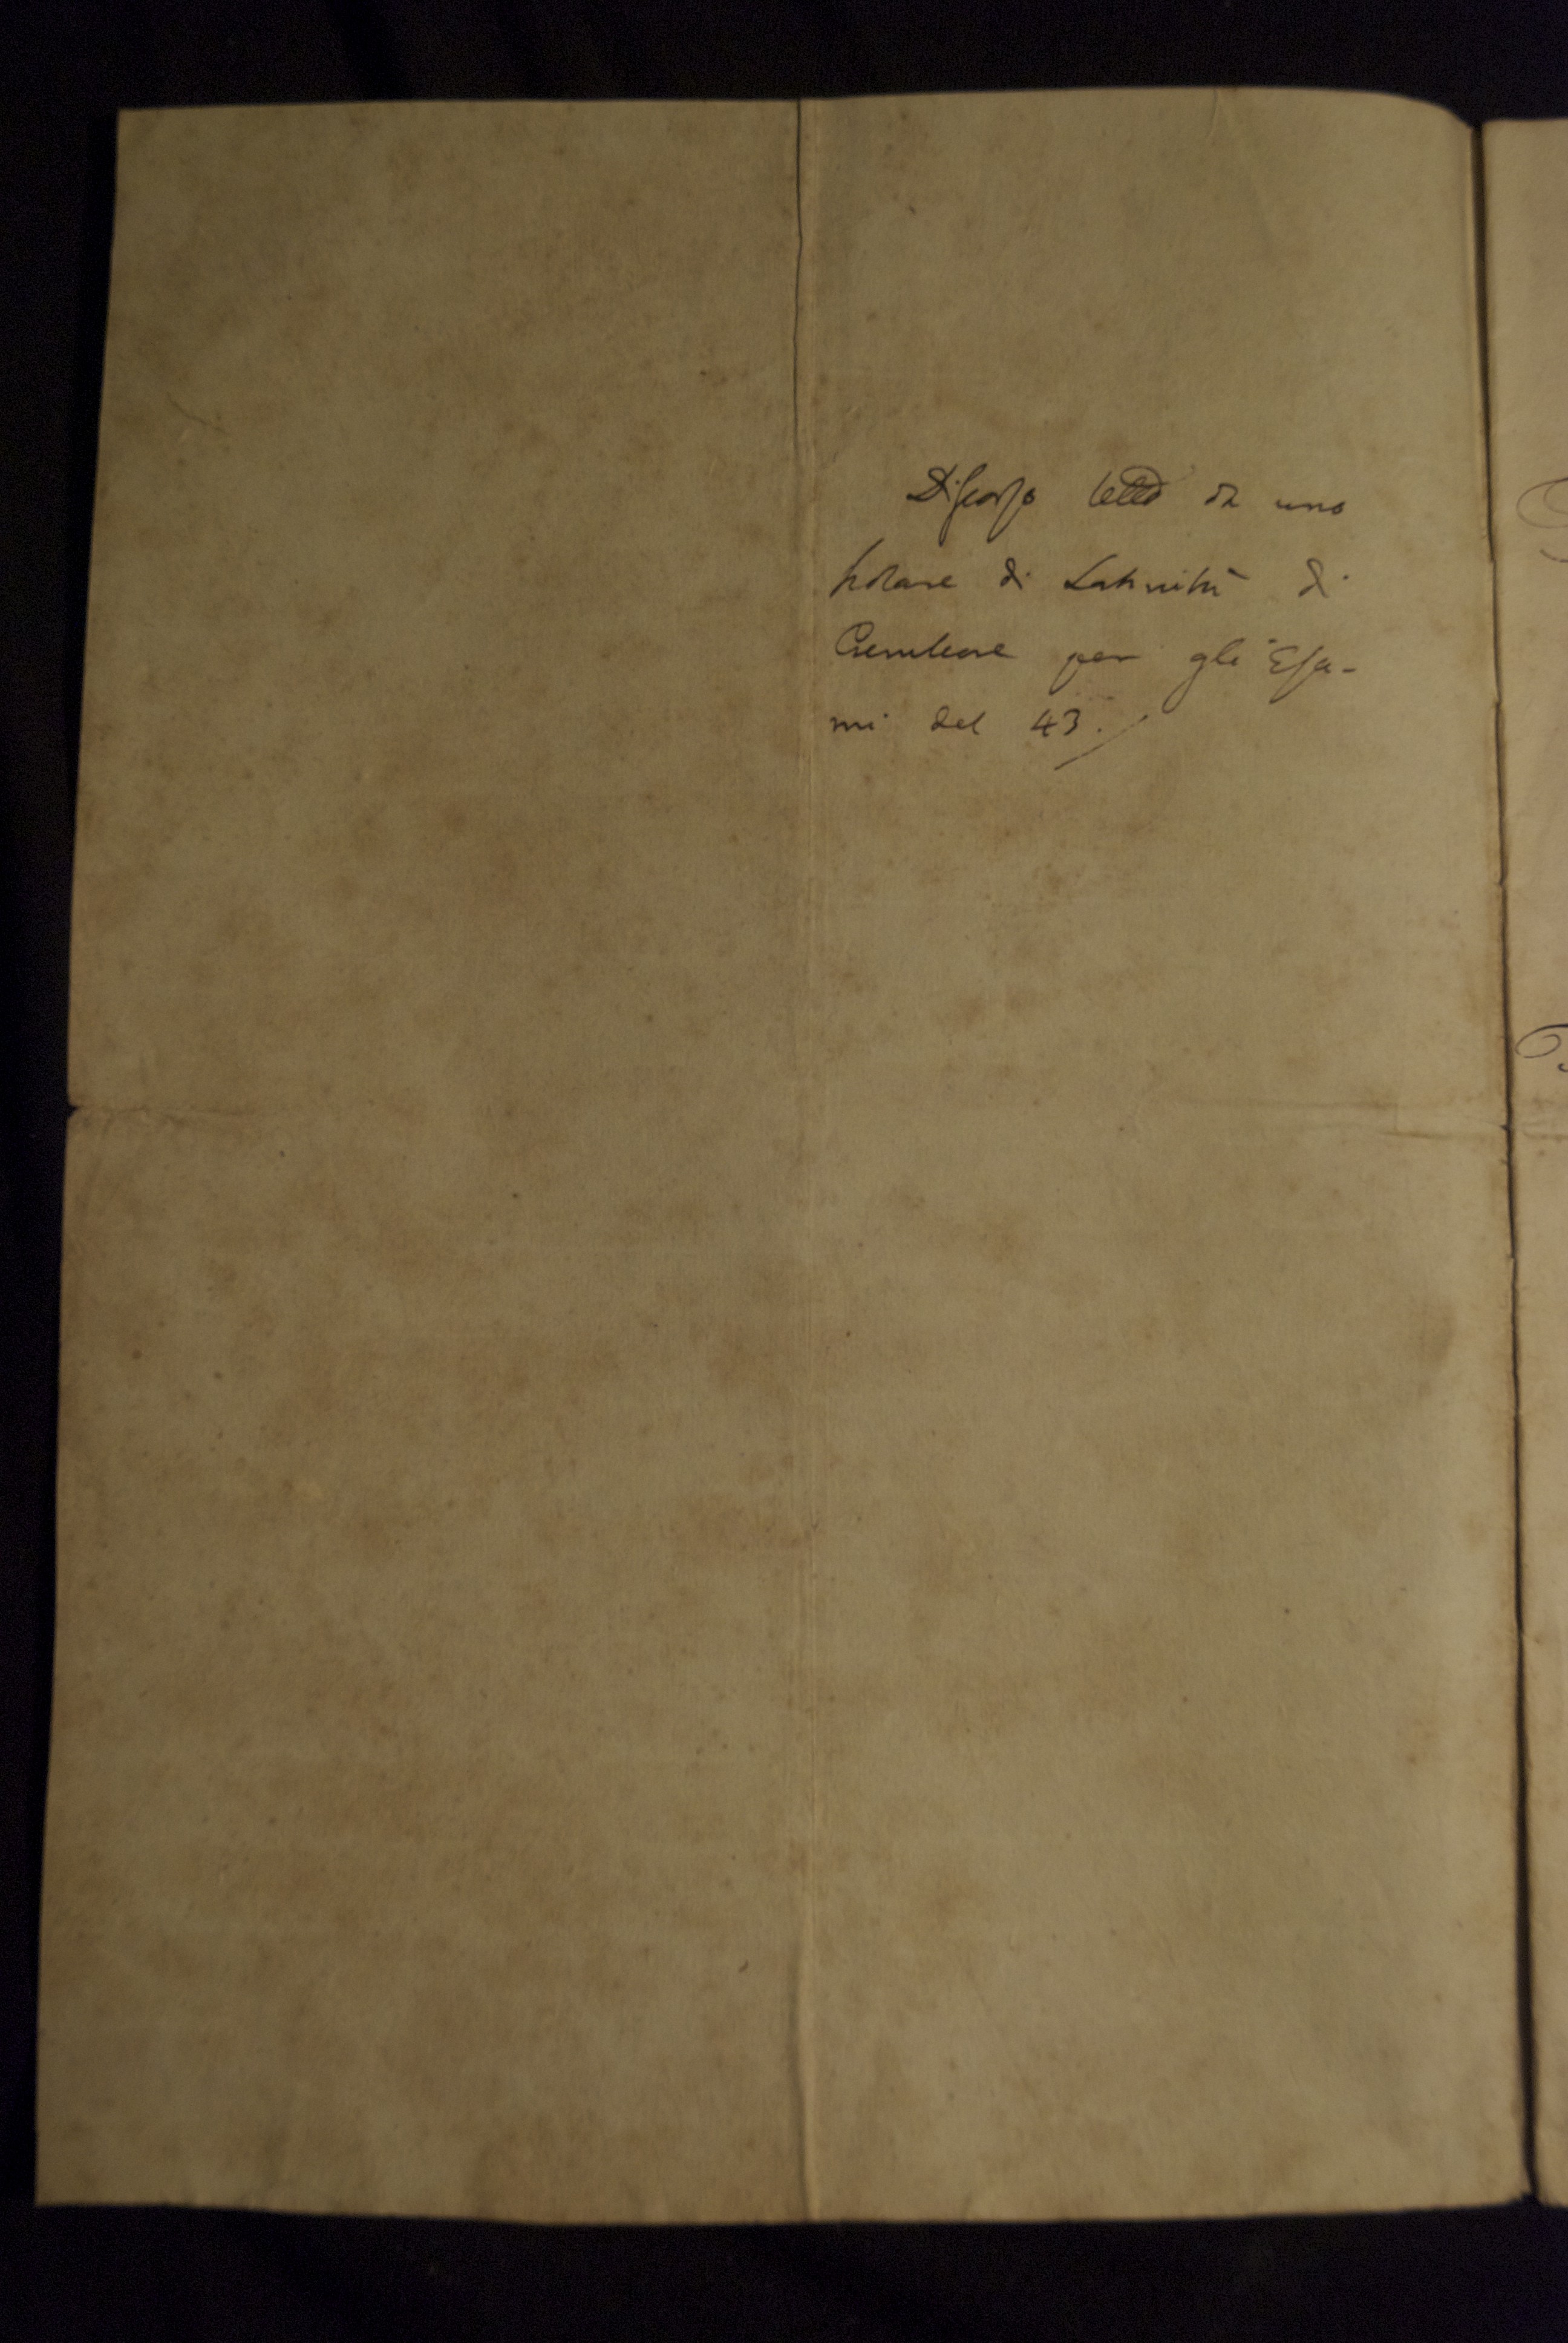 Discorso letto da uno
scolare di Latinità di
per gli Esa-
mi del 43.